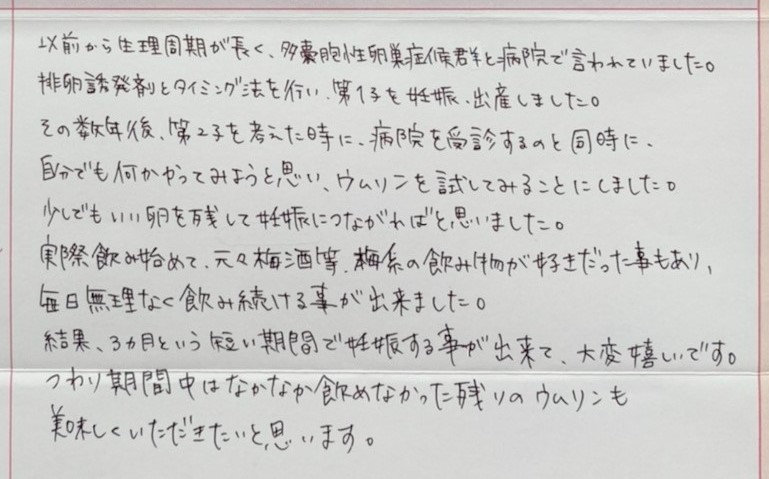 以前から生理周期が長く、多嚢胞性卵巣症候群と病院で言われていました。
排卵誘発剤とタイミング法を行い、第1子を妊娠、出産しました。
その数年後、第2子を考えた時に、病院を受診するのと同時に、
自分でも何かやってみようと思い、ウムリンを試してみることにしました。
少しでもいい卵を残して妊娠につながればと思いました。
実際飲み始めて、元々梅酒等、梅系の飲み物が好きだった事もあり、
毎日無理なく飲み続ける事が出来ました。
結果、3ヵ月という短い期間で妊娠する事が出来て、大変嬉しいです。
つわり期間中はなかなか飲めなかった残りのウムリンも
美味しくいただきたいと思います。